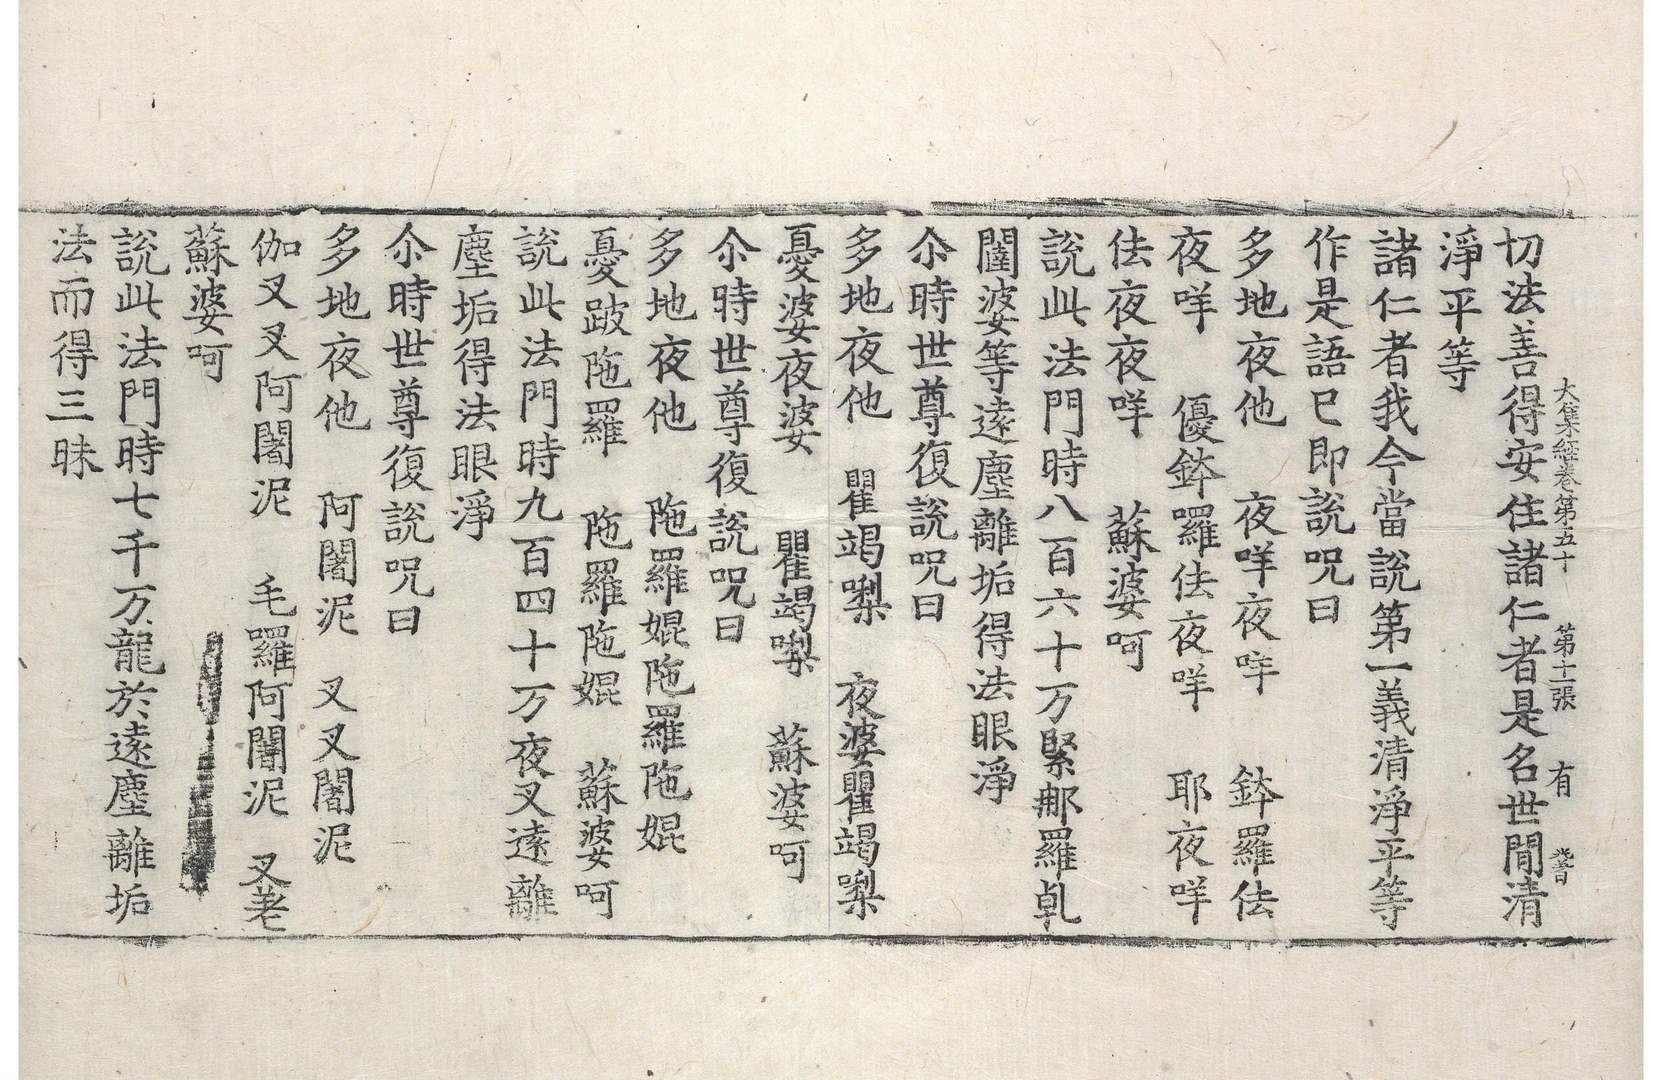 大集經卷第五十 第十一張 有
切法善得安住諸仁者是名世間清
淨平等
諸仁者我今當說第一義清淨平等
作是語已即說呪曰
多地夜他 夜咩夜咩 鉢羅佉
夜咩 優鉢囉佉夜咩 耶夜咩
佉夜夜咩 蘇婆呵
說此法門時八百六十万緊那羅乹
闥婆等遠塵離垢得法眼淨
尒時世尊復說呪曰
多地夜他 瞿竭㗚 夜婆瞿竭㗚
憂婆夜婆 瞿竭㗚 蘇婆呵
尒時世尊復說呪曰
多地夜他 陁羅婫陁羅陁婫
憂跛陁羅 陁羅陁婫 蘇婆呵
說此法門時九百四十万夜叉遠離
塵垢得法眼淨
尒時世尊復說呪曰
多地夜他 阿闍泥 叉叉闍泥
伽叉叉阿闍泥 毛羅阿闍泥 叉
蘇婆呵
說此法門時七千万龍於遠塵離垢
法而得三昧